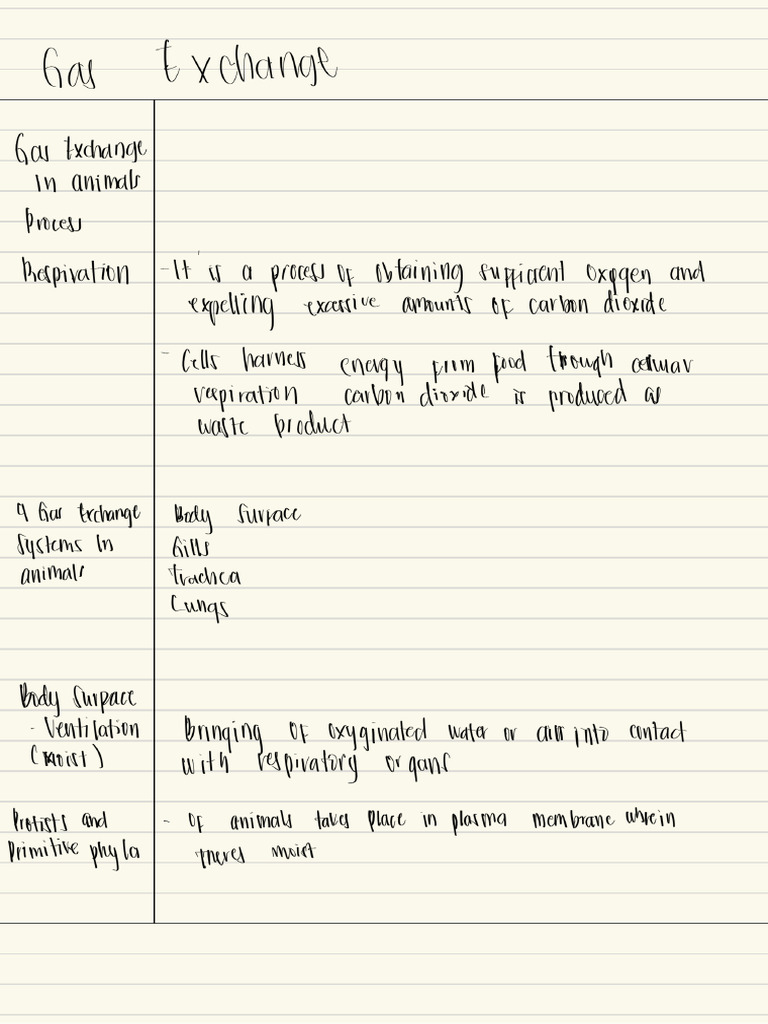 Gas Exchange
Gas Exchange
in animals
Process
Respiration
- It is a process of obtaining sufficient oxygen and
expelling excessive amounts of carbon dioxide
- Cells harness energy from food through cellular
respiration carbon dioxide is produced as
waste product
4 Gas Exchange
Systems in
animals
Body Surface
Gills
Trachea
Lungs
Body Surface
- Ventilation
(moist)
Bringing of oxyginated water or air into contact
with respiratory organs
Protists and
Primitive phyla
- Of animals takes place in plasma membrane wherein
theres moist